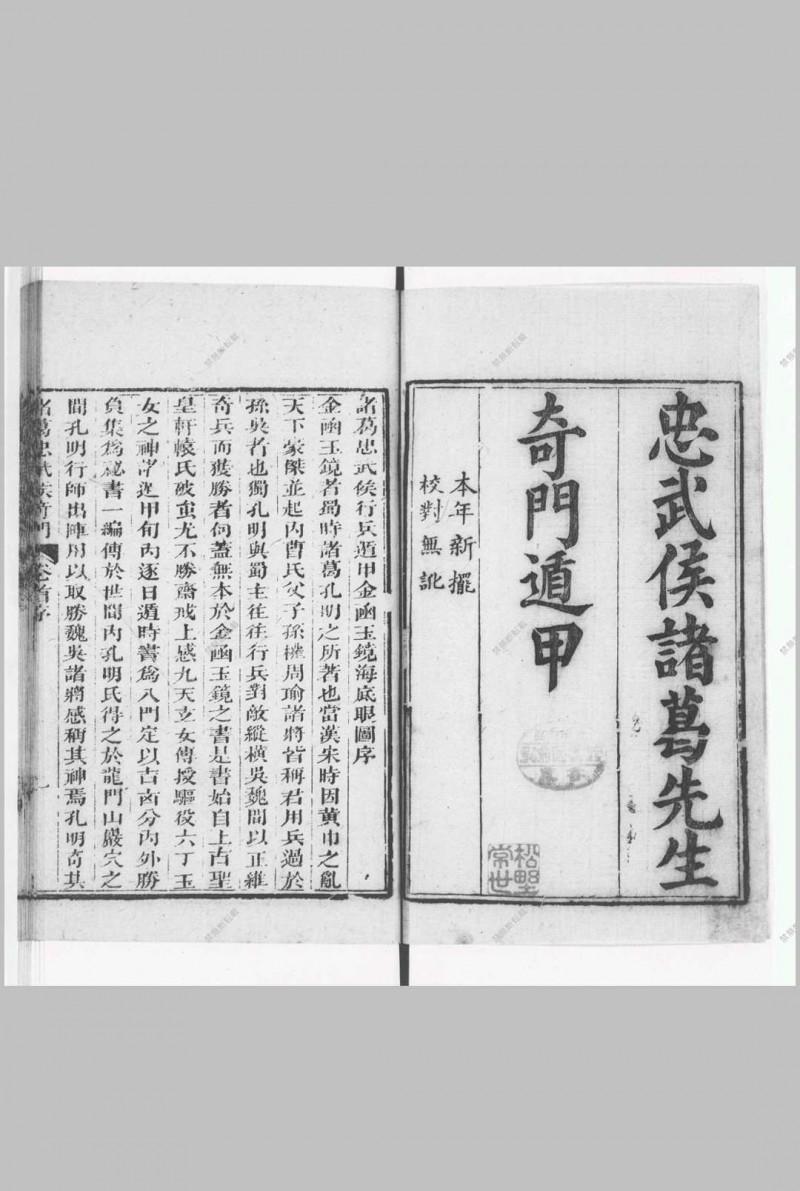 忠武侯諸葛先生
奇門遁甲
本年新擺
校對無訛
松野常世
諸葛忠武侯行兵遁甲金函玉鏡海底眼圖序
金函玉鏡者蜀時諸葛孔明之所著也當漢末時因黃巾之亂
天下豪傑並起內曹氏父子孫權周瑜諸將皆稱君用兵過於
孫吳者也獨孔明與蜀主往往行兵對敵縱橫吳魏間以正雜
奇兵而獲勝者何蓋無本於金函玉鏡之書是書始自上古聖
皇軒轅氏破蚩尤不勝齋戒上感九天玄女傳授驅役六丁玉
女之神符遁甲旬內逐日遁時書為八門定以吉凶分內外勝
負集為秘書一編傳於世間內孔明氏得之於龍門山巖穴之
間孔明行師出陣用以取勝魏吳諸將感稱其神焉孔明奇其
諸葛忠武侯奇門
卷首序
一